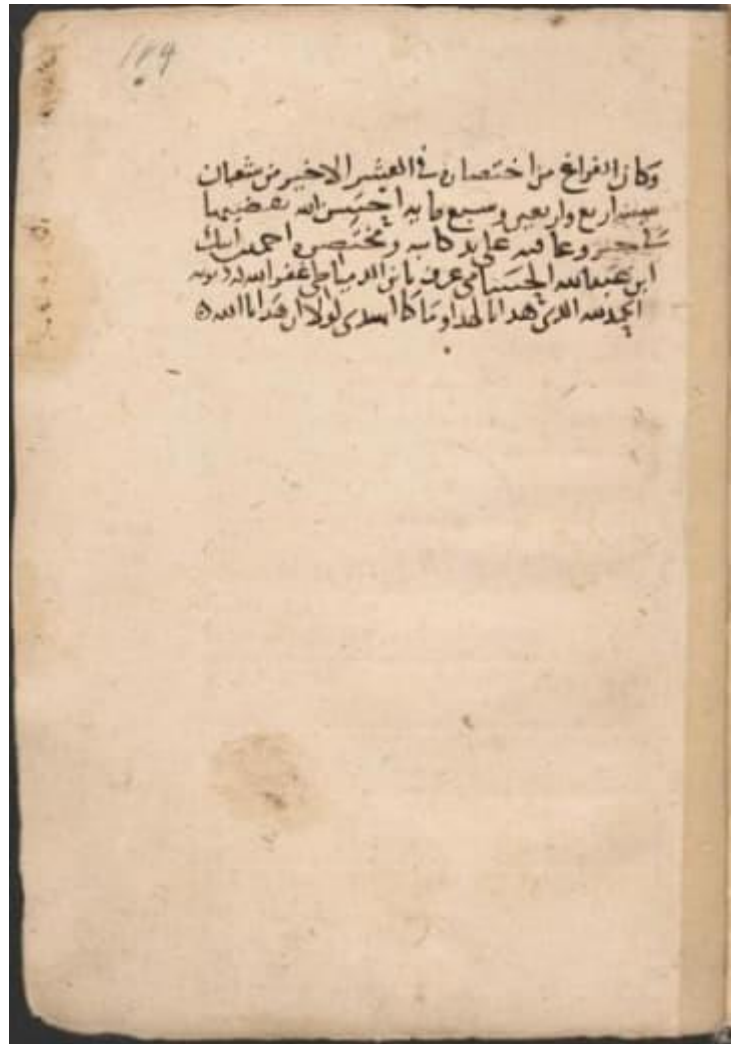 184
وكان الفراغ من اختصاره في العشر الاخير من شعبان
سنة اربع واربعين وسبع مايه احسن الله تقضيها
في خير وعافيه على يد كاتبه ومختصره احمد بن ايبك
ابن عبد الله الحسامي عرف بابن الدمياطي غفر الله له ذنوبه
الحمد لله الذي هدانا لهذا وما كنا لنهتدي لولا ان هدانا الله